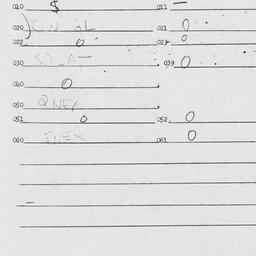 010 $ 011 —
020 021 0
022 0 023 0
030 039 0
040 0
050 QNEX
051 0 052 0
060 INEX 061 0